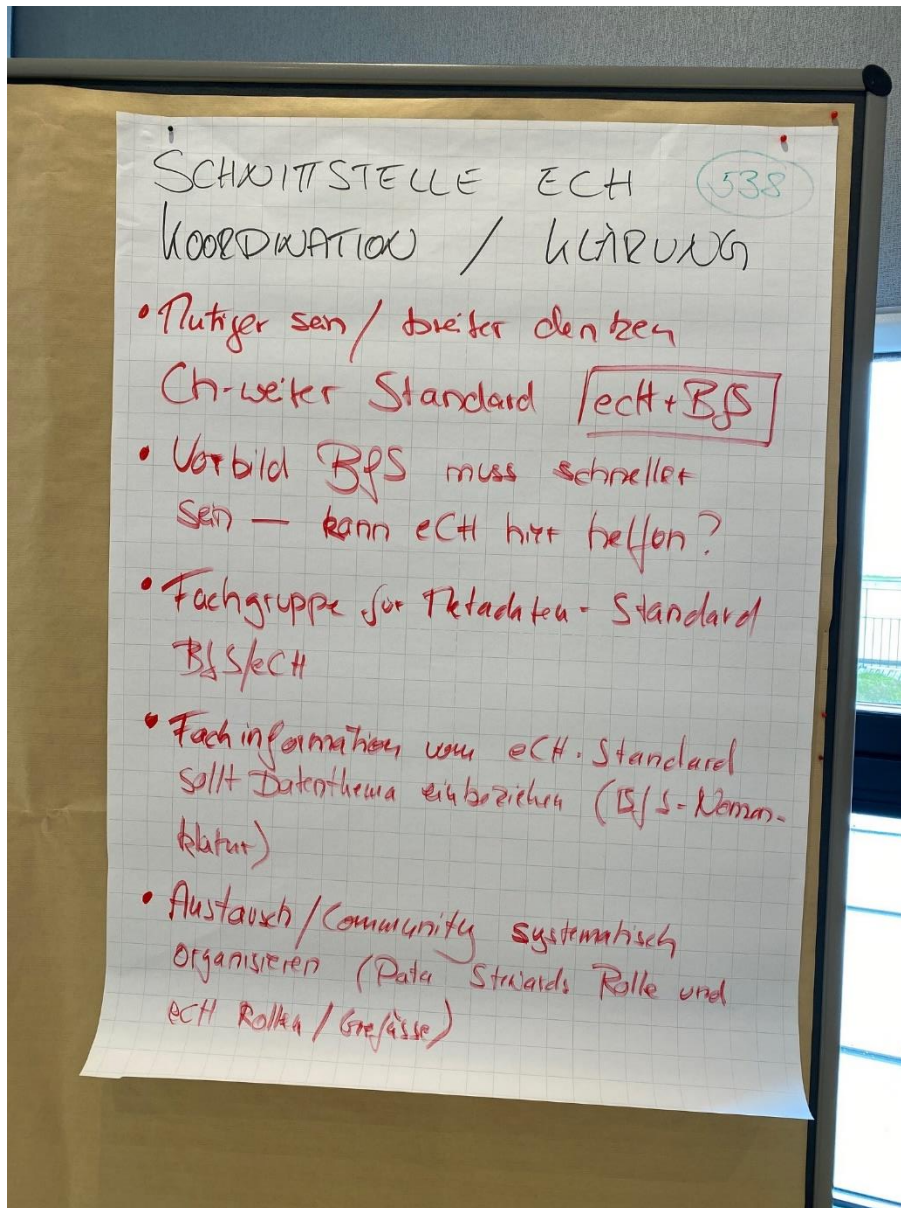 SCHNITTSTELLE ECH 538
KOORDINATION / KLÄRUNG
• Mutiger sein / breiter denken
CH-weiter Standard ecH + BfS
• Vorbild BfS muss schneller
sein — kann eCH hier helfen?
• Fachgruppe für Metadaten - Standard
BfS/eCH
• Fachinformation vom eCH-Standard
sollt Datenthema einbeziehen (BfS-Nomen-
klatur)
• Austausch/Community systematisch
organisieren (Data Stewards Rolle und
eCH Rollen / Gefässe)